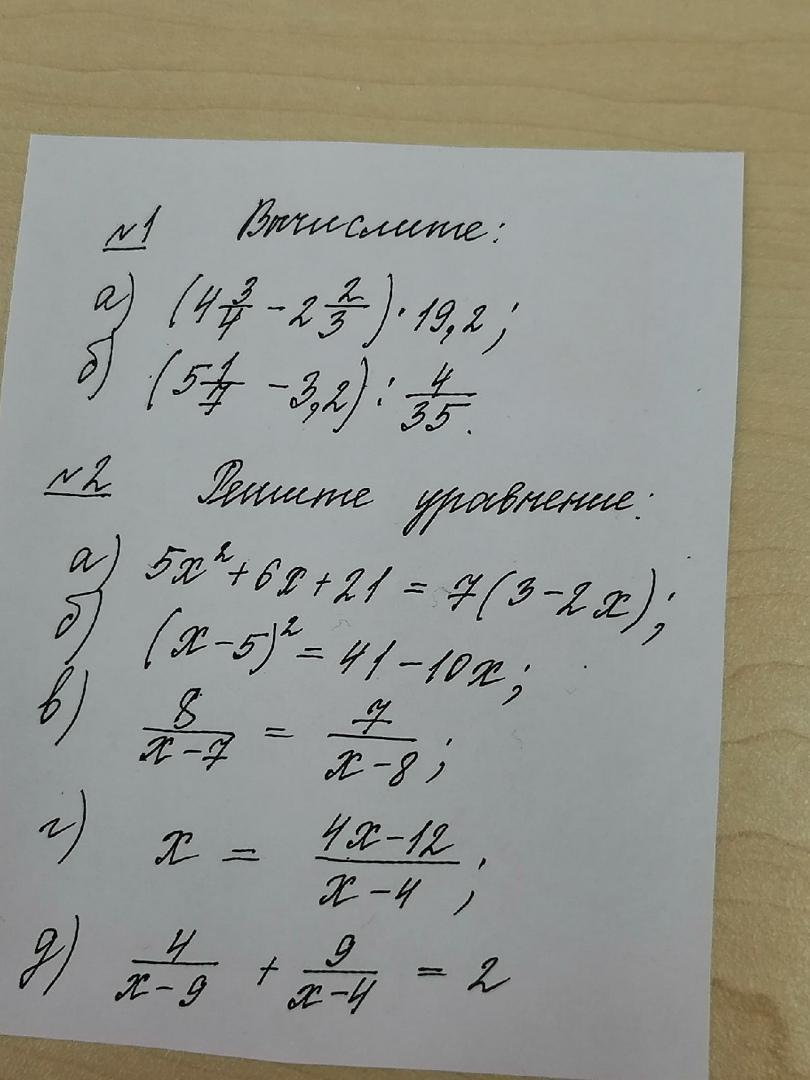 №1 Вычислите:
а) (4 3/4 - 2 2/3) · 19,2;
б) (5 1/7 - 3,2) : 4/35.
№2 Решите уравнение:
а) 5x² + 6x + 21 = 7(3 - 2x);
б) (x - 5)² = 41 - 10x;
в) 8/(x - 7) = 7/(x - 8);
г) x = (4x - 12)/(x - 4);
д) 4/(x - 9) + 9/(x - 4) = 2